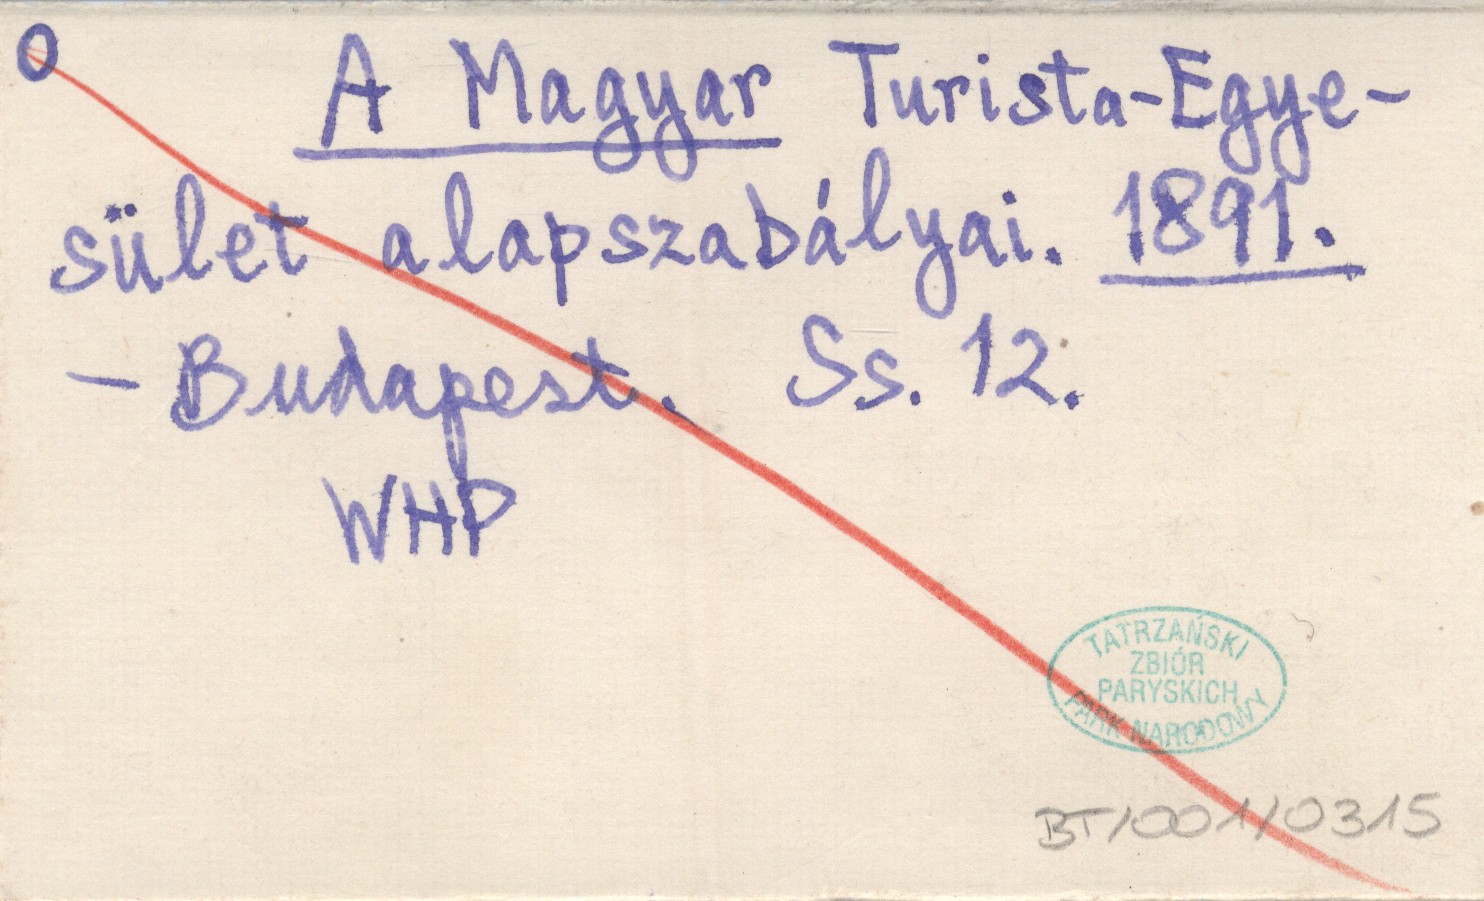 O
A Magyar Turista-Egye-
sület alapszabályai. 1891.
- Budapest. Ss. 12.
WHP
TATRZAŃSKI
ZBIÓR
PARYSKICH
PARK NARODOWY
BT/001/0315